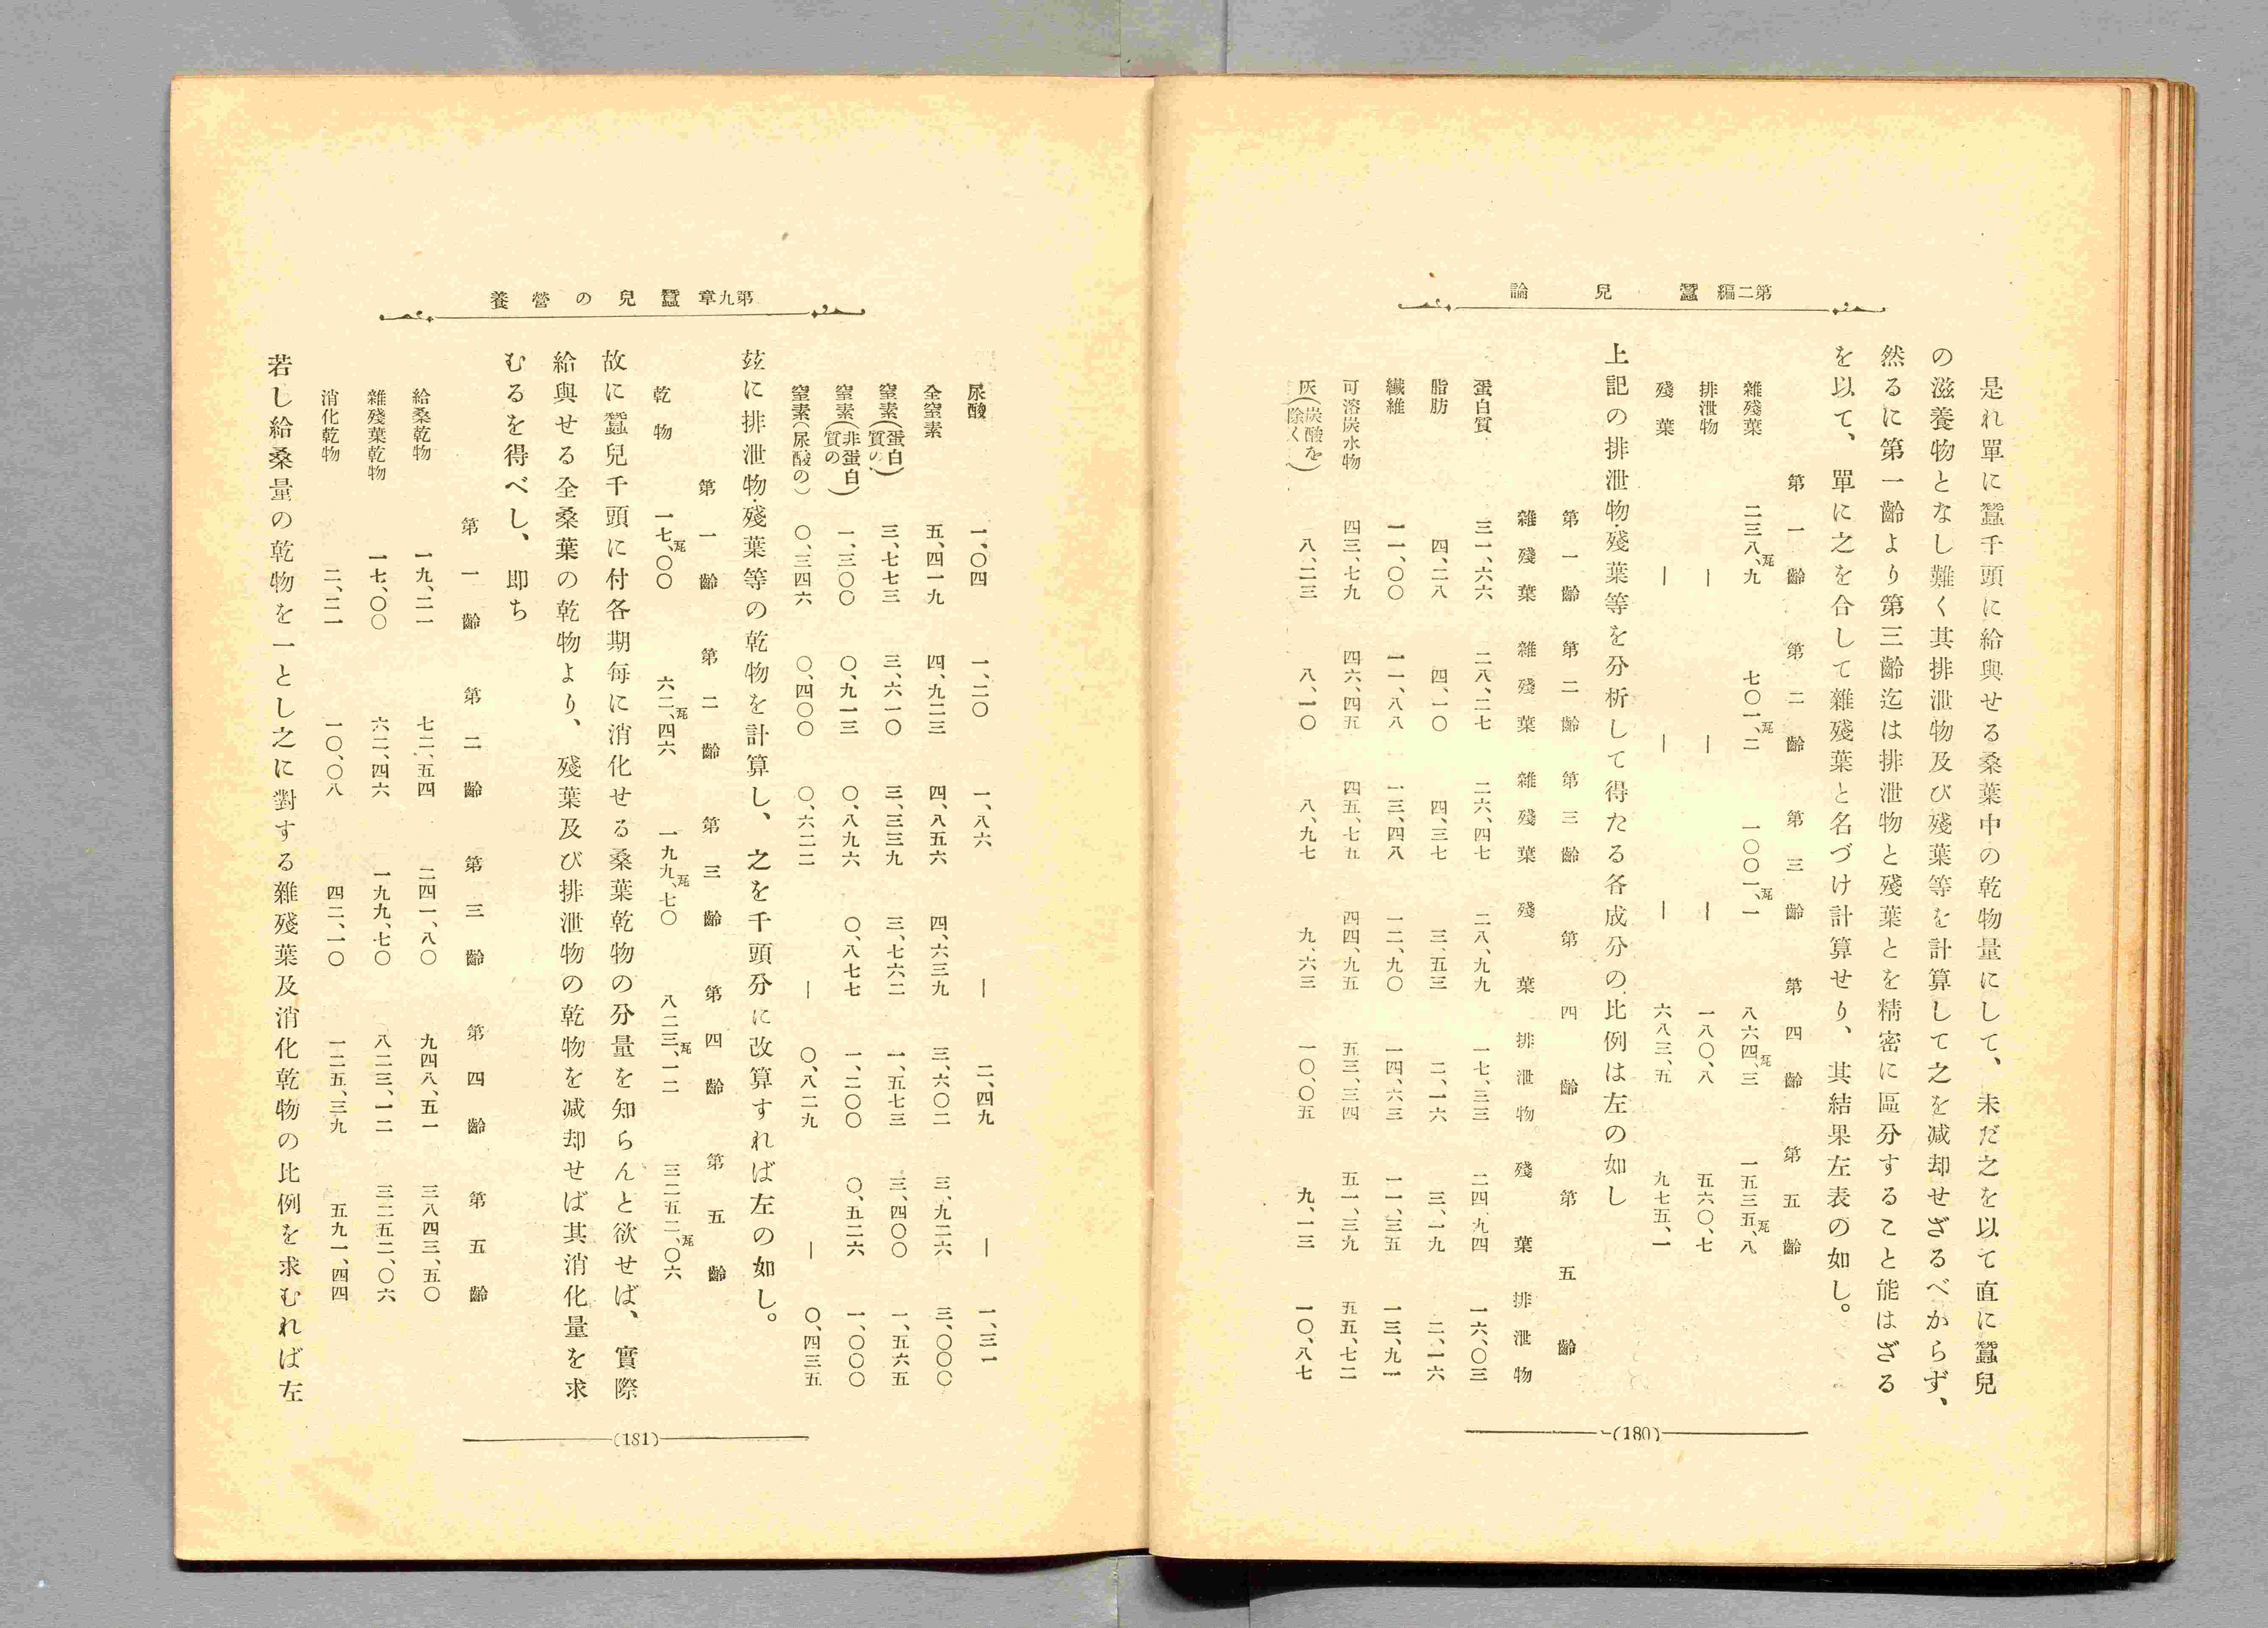 第二編 蠶兒論
是れ單に蠶千頭に給與せる桑葉中の乾物量にして、未だ之を以て直に蠶兒
の滋養物となし難く其排泄物及び殘葉等を計算して之を減却せざるべからず、
然るに第一齡より第三齡迄は排泄物と殘葉とを精密に區分すること能はざる
を以て、單に之を合して雜殘葉と名づけ計算せり、其結果左表の如し。
第一齡 第二齡 第三齡 第四齡 第五齡
雜殘葉 二三八、瓦九 七〇一、瓦二 一〇〇一、瓦一 八六四、瓦三 一五三五、瓦八
排泄物 ― ― ― 一八〇、八 五六〇、七
殘葉 ― ― ― 六八三、五 九七五、一
上記の排泄物·殘葉等を分析して得たる各成分の比例は左の如し
第一齡 第二齡 第三齡 第四齡 第五齡
雜殘葉 雜殘葉 雜殘葉 殘葉 排泄物 殘葉 排泄物
蛋白質 三一、六六 二八、二七 二六、四七 二八、九九 一七、三三 二四、九四 一六、〇三
脂肪 四、二八 四、一〇 四、三七 三、五三 二、一六 三、一九 二、一六
纖維 一一、〇〇 一一、八八 一三、四八 一二、九〇 一四、六三 一一、三五 一三、九一
可溶炭水物 四三、七九 四六、四五 四五、七五 四四、九五 五三、三四 五一、三九 五五、七二
灰(炭酸を除く) 八、二三 八、一〇 八、九七 九、六三 一〇、〇五 九、一三 一〇、八七
(180)
第九章 蠶兒の營養
尿酸 一、〇四 一、二〇 一、八六 ― 二、四九 ― 一、三一
全窒素 五、四一九 四、九二三 四、八五六 四、六三九 三、六〇二 三、九二六 三、〇〇〇
窒素(蛋白質の) 三、七七三 三、六一〇 三、三三九 三、七六二 一、五七三 三、四〇〇 一、五六五
窒素(非蛋白質の) 一、三〇〇 〇、九一三 〇、八九六 〇、八七七 一、二〇〇 〇、五二六 一、〇〇〇
窒素(尿酸の) 〇、三四六 〇、四〇〇 〇、六二二 ― 〇、八二九 ― 〇、四三五
玆に排泄物·殘葉等の乾物を計算し、之を千頭分に改算すれば左の如し。
第一齡 第二齡 第三齡 第四齡 第五齡
乾物 一七、瓦〇〇 六二、瓦四六 一九九、瓦七〇 八二三、瓦一二 三二五二、瓦〇六
故に蠶兒千頭に付各期每に消化せる桑葉乾物の分量を知らんと欲せば、實際
給與せる全桑葉の乾物より、殘葉及び排泄物の乾物を減却せば其消化量を求
むるを得べし、卽ち
第一齡 第二齡 第三齡 第四齡 第五齡
給桑乾物 一九、二一 七二、五四 二四一、八〇 九四八、五一 三八四三、五〇
雜殘葉乾物 一七、〇〇 六二、四六 一九九、七〇 八二三、一二 三二五二、〇六
消化乾物 二、二一 一〇、〇八 四二、一〇 一二五、三九 五九一、四四
若し給桑量の乾物を一とし之に對する雜殘葉及消化乾物の比例を求むれば左
(181)